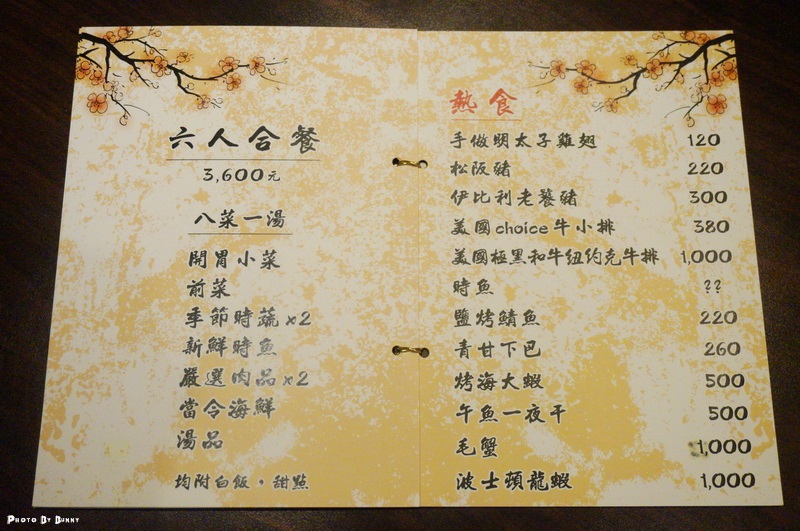 六人合餐
3,600元
八菜一湯
開胃小菜
前菜
季節時蔬 x2
新鮮時魚
嚴選肉品 x2
當令海鮮
湯品
均附白飯・甜點
熱食
手做明太子雞翅 120
松阪豬 220
伊比利老饕豬 300
美國choice牛小排 380
美國極黑和牛紐約克牛排 1,000
時魚 ??
鹽烤鯖魚 220
青甘下巴 260
烤海大蝦 500
午魚一夜干 500
毛蟹 1,000
波士頓龍蝦 1,000
PHOTO BY BUNNY